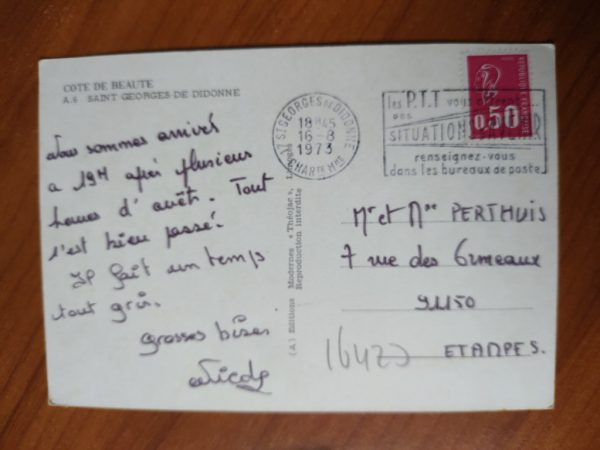 COTE DE BEAUTE
A.6 SAINT GEORGES-DE DIDONNE
Nous sommes arrivés
a 19H après plusieurs
heures d'arrêt. Tout
s'est bien passé.
Il fait un temps
tout gris.
Grosses bises
Nicole
(A.) Editions Modernes « Théojac », Limoges
Reproduction interdite
17 ST GEORGES DE DIDONNE
18H45
16-8
1973
CHARTE MME
les P.T.T vous offrent
des
SITUATIONS D'AVENIR
renseignez-vous
dans les bureaux de poste
0,50
REPUBLIQUE FRANÇAISE
Mr et Mme PERTHUIS
7 rue des Ormeaux
91150
ETAMPES.
(642)